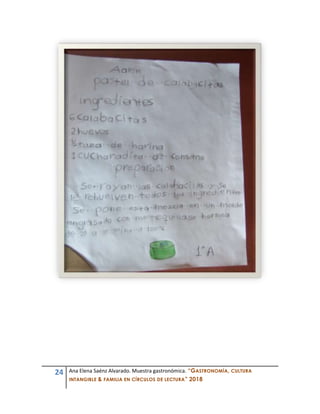 Aarin
pastel de calabacitas
ingredientes
6 calabacitas
2 huevos
taza de harina
1 cucharadita de
preparacion
Se rayan las calabacitas y se
rebuelven todos los ingredientes
Se pone esta mezcla en un
engrasado con mantequilla se hornea
1°A
24 Ana Elena Saénz Alvarado. Muestra gastronómica. "GASTRONOMÍA, CULTURA
INTANGIBLE & FAMILIA EN CÍRCULOS DE LECTURA" 2018